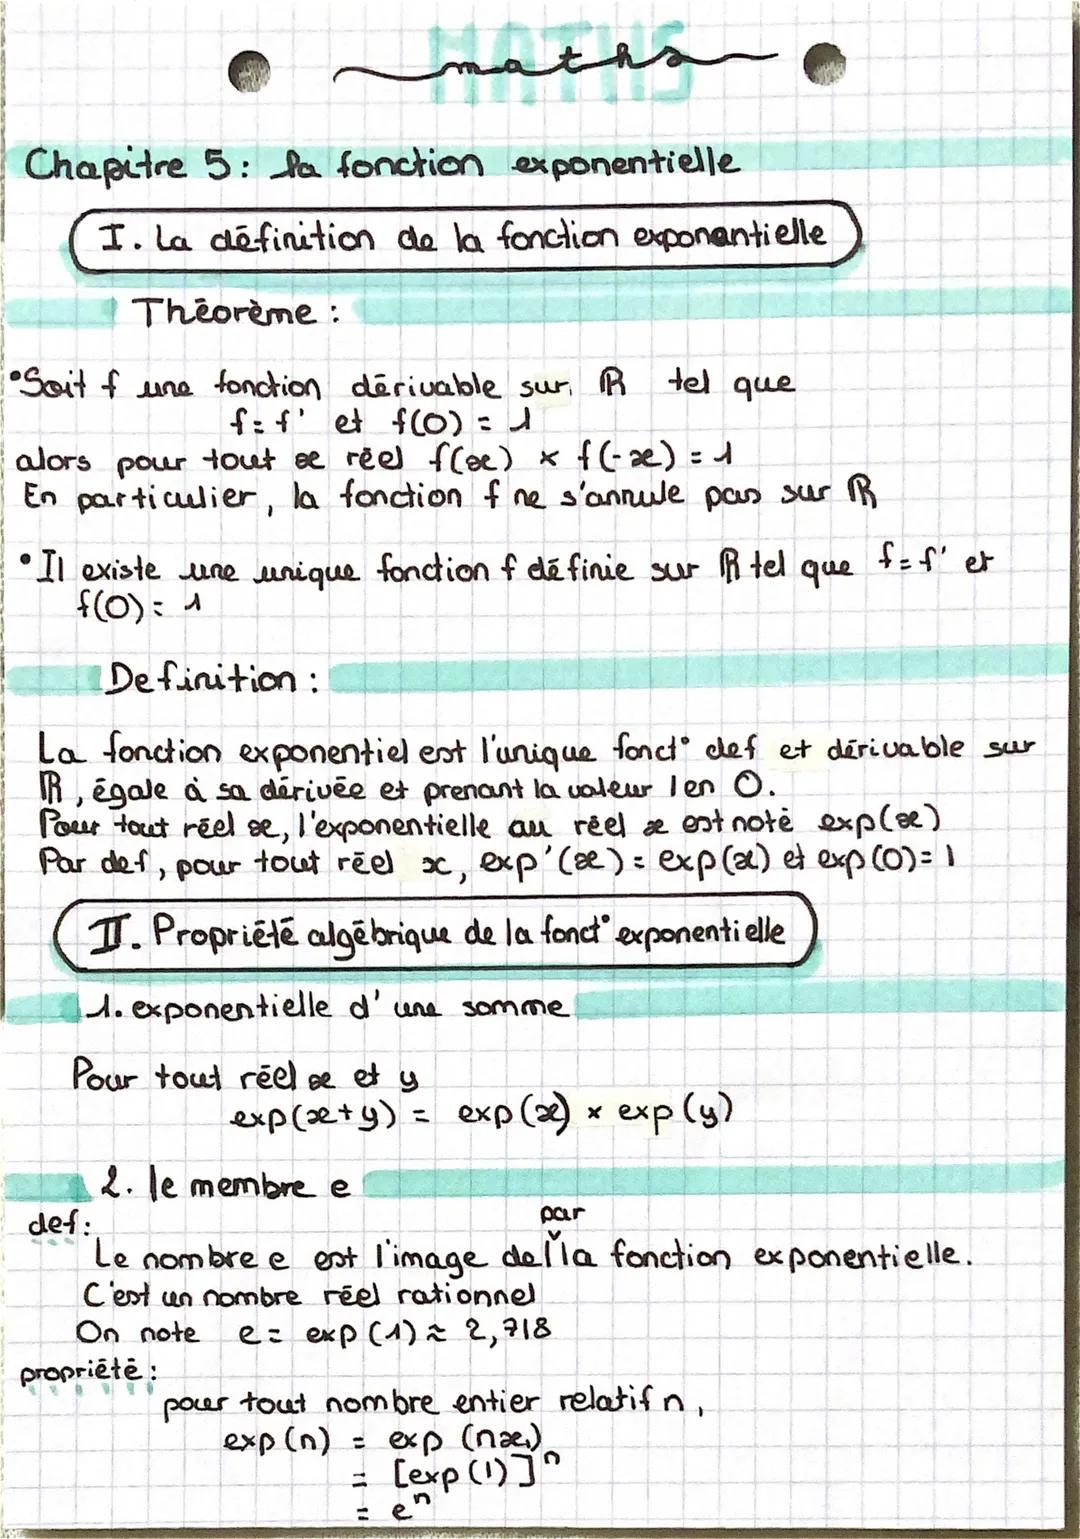 MATHS
maths
Chapitre 5: la fonction exponentielle
I. La définition de la fonction exponentielle
Théorème :
•Soit f une fonction dérivable sur ℝ tel que
f=f' et f(0) = 1
alors pour tout x réel f(x) × f(-x) = 1
En particulier, la fonction f ne s'annule pas sur ℝ
• Il existe une unique fonction f définie sur ℝ tel que f=f' et
f(0) = 1
Definition :
La fonction exponentiel est l'unique fonct° def et dérivable sur
ℝ, égale à sa dérivée et prenant la valeur 1 en 0.
Pour tout réel x, l'exponentielle au réel x est noté exp(x)
Par def, pour tout réel x, exp'(x) = exp(x) et exp(0)= 1
II. Propriété algébrique de la fonct° exponentielle
1. exponentielle d'une somme
Pour tout réel x et y
exp(x+y) = exp(x) × exp(y)
2. le membre e
def:
Le nombre e est l'image de 1 par la fonction exponentielle.
C'est un nombre réel rationnel
On note e = exp(1) ≈ 2,718
propriété :
pour tout nombre entier relatif n,
exp(n) = exp (nx1)
= [exp(1)]ⁿ
= eⁿ